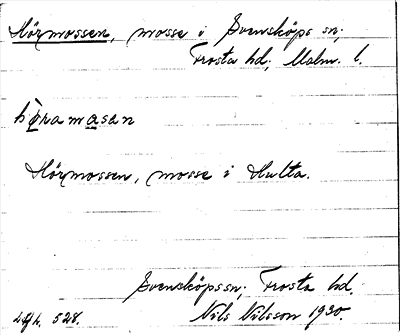 Hörmossen, mosse i Svensköps sn;
Frosta hd; Malm. l.
hö̀ramasan
Hörmossen, mosse i Hulta.
Svensköps sn; Frosta hd.
528. Nils Nilsson 1930